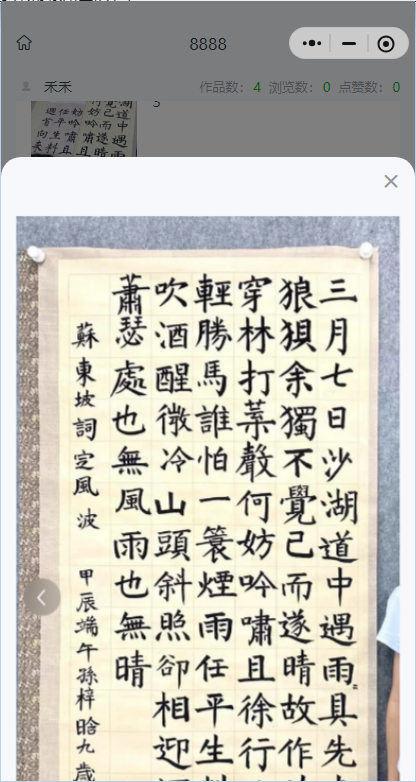 8888
禾禾
作品数: 4 浏览数: 0 点赞数: 0
5
三月七日沙湖道中遇雨具先
狼狽余獨不覺已而遂晴故作
穿林打葉聲何妨吟嘯且徐行
輕勝馬誰怕一簑煙雨任平生
吹酒醒微冷山頭斜照卻相迎
蕭瑟處也無風雨也無晴
蘇東坡詞定風波
甲辰端午孫梓晗九歲